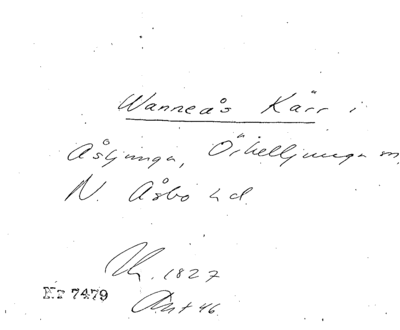 Wanneås Kärr i
Åsljunga, Örkelljunga m,
N. Åsbo hd.
1827
Nr 7479
Ant 46.